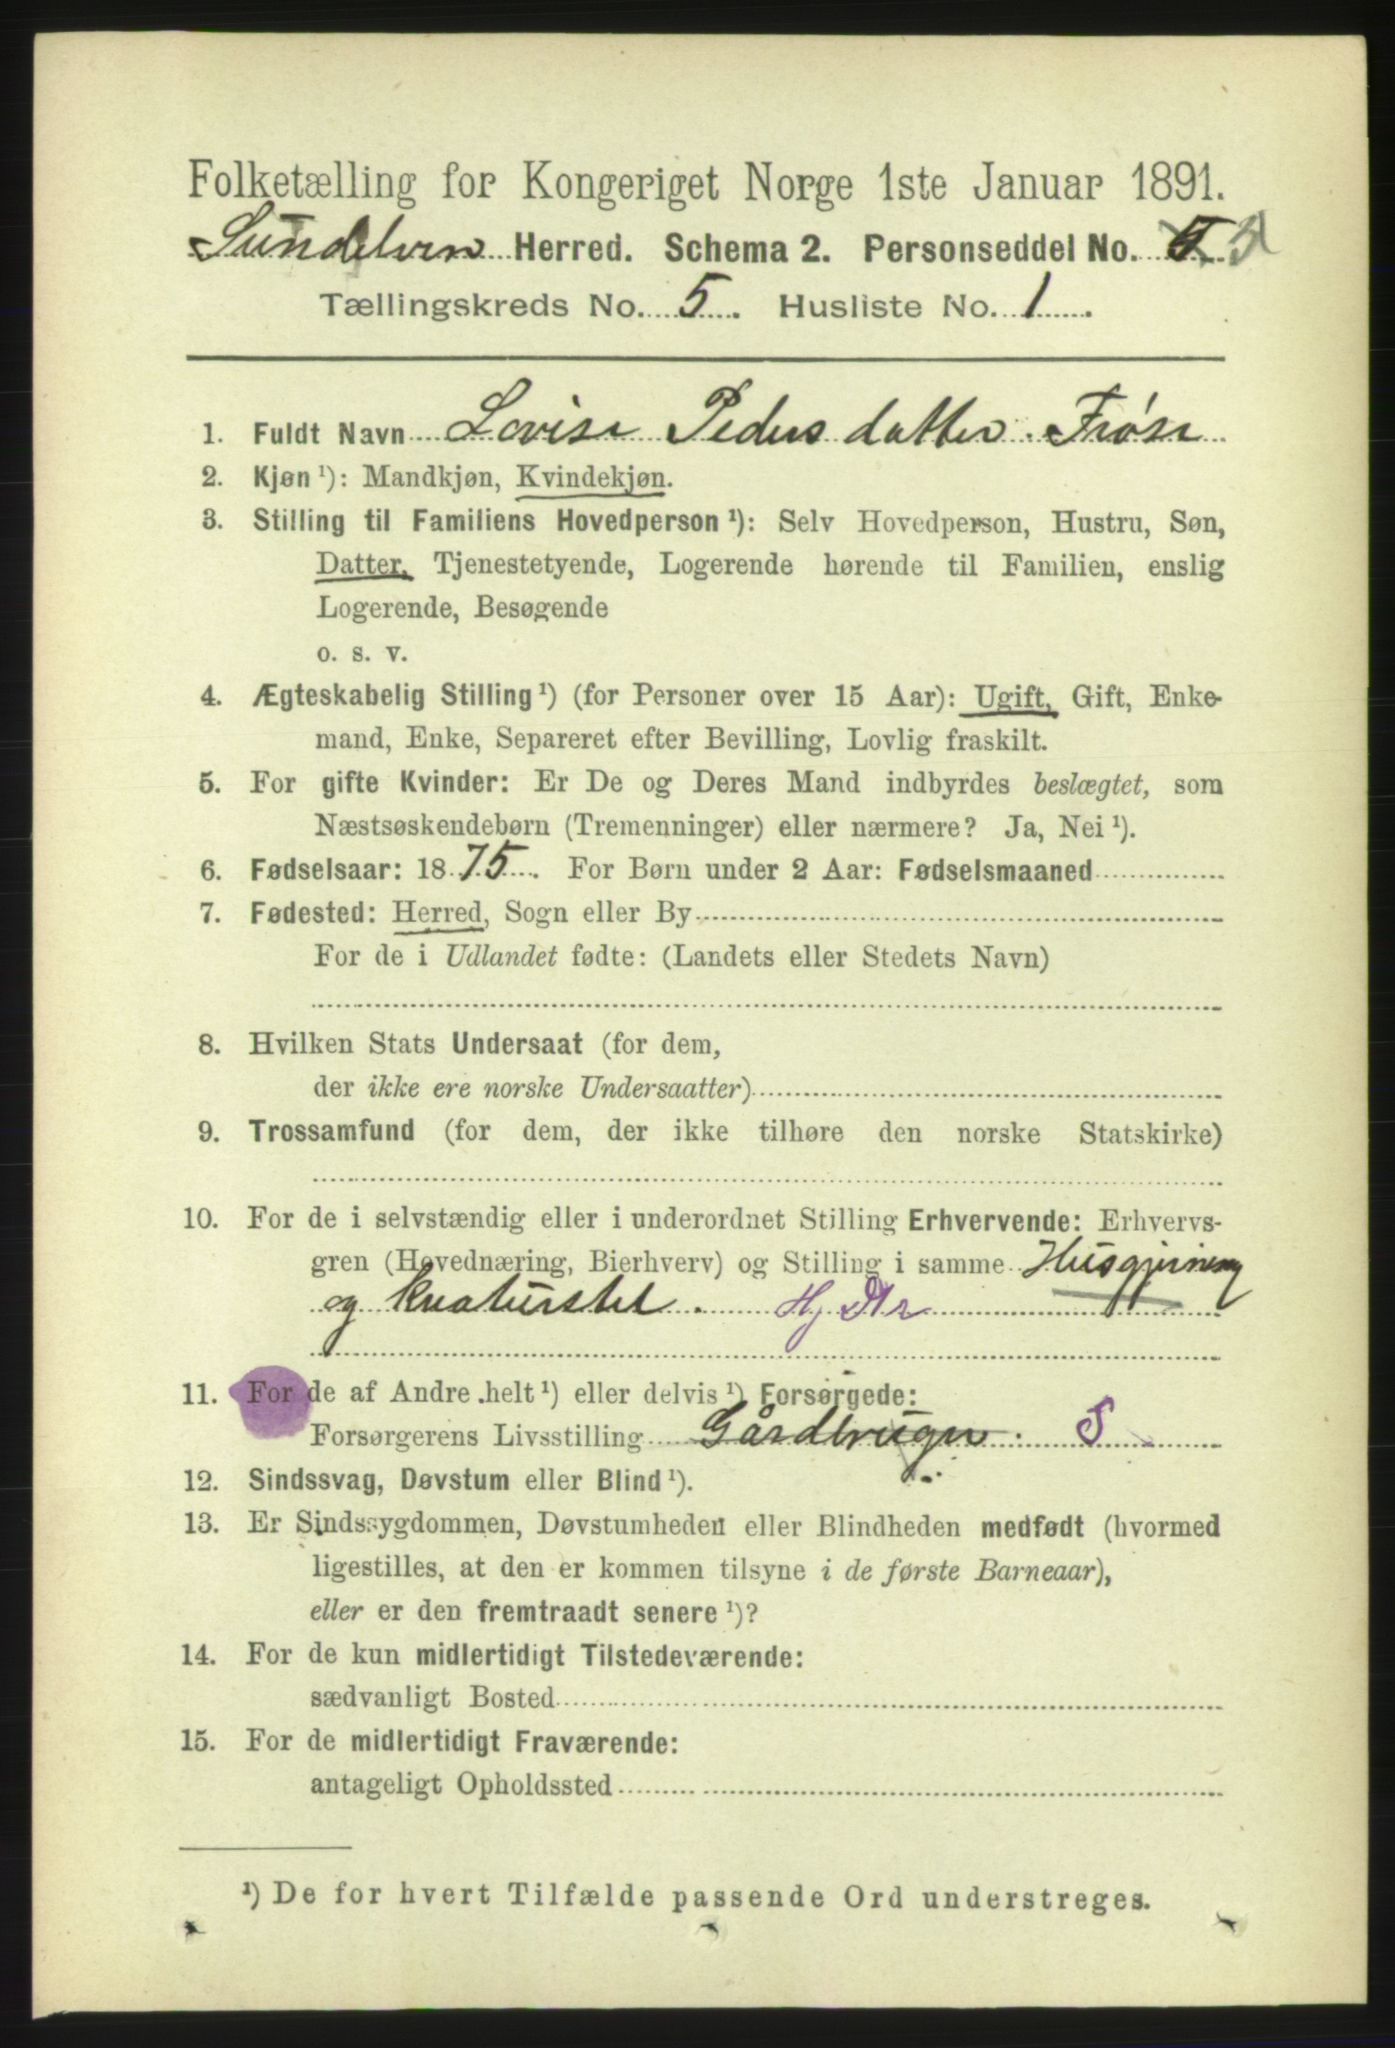 Folketælling for Kongeriget Norge 1ste Januar 1891.
Sundelven Herred. Schema 2. Personseddel No. 5
Tællingskreds No. 5. Husliste No. 1.
1. Fuldt Navn Lovise Peders datter Frøse
2. Kjøn ¹): Mandkjøn, Kvindekjøn.
3. Stilling til Familiens Hovedperson ¹): Selv Hovedperson, Hustru, Søn,
Datter, Tjenestetyende, Logerende hørende til Familien, enslig
Logerende, Besøgende
o. s. v.
4. Ægteskabelig Stilling ¹) (for Personer over 15 Aar): Ugift, Gift, Enke-
mand, Enke, Separeret efter Bevilling, Lovlig fraskilt.
5. For gifte Kvinder: Er De og Deres Mand indbyrdes beslægtet, som
Næstsøskendebørn (Tremenninger) eller nærmere? Ja, Nei ¹).
6. Fødselsaar: 1875. For Børn under 2 Aar: Fødselsmaaned
7. Fødested: Herred, Sogn eller By
For de i Udlandet fødte: (Landets eller Stedets Navn)
8. Hvilken Stats Undersaat (for dem,
der ikke ere norske Undersaatter)
9. Trossamfund (for dem, der ikke tilhøre den norske Statskirke)
10. For de i selvstændig eller i underordnet Stilling Erhvervende: Erhvervs-
gren (Hovednæring, Bierhverv) og Stilling i samme Husgjerning
og kreaturstel.
11. For de af Andre helt ¹) eller delvis ¹) Forsørgede:
Forsørgerens Livsstilling Gårdbruger. S
12. Sindssvag, Døvstum eller Blind ¹).
13. Er Sindssygdommen, Døvstumheden eller Blindheden medfødt (hvormed
ligestilles, at den er kommen tilsyne i de første Barneaar),
eller er den fremtraadt senere ¹)?
14. For de kun midlertidigt Tilstedeværende:
sædvanligt Bosted
15. For de midlertidigt Fraværende:
antageligt Opholdssted
¹) De for hvert Tilfælde passende Ord understreges.